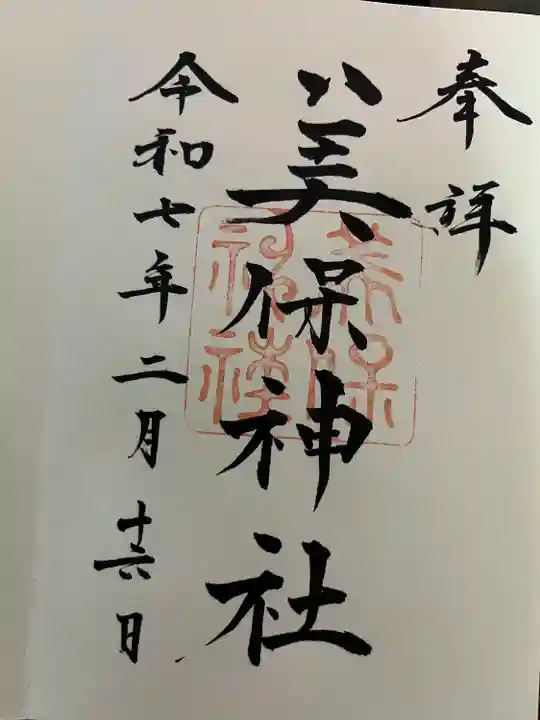 奉拝
美保神社
美保神社
令和七年二月十六日